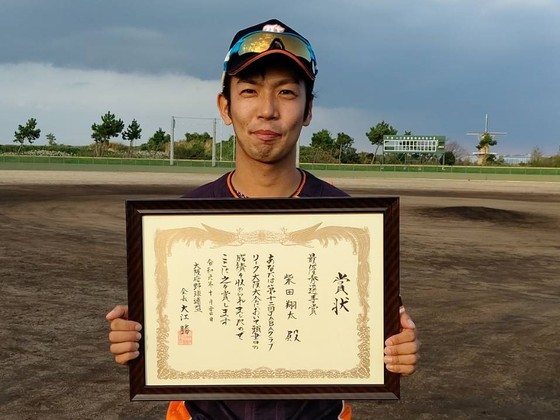 賞状
最優秀選手賞
柴田翔太 殿
あなたは第十二回JABAクラブ
リーグ大阪大会において頭書の
成績を収められましたので
ここに之を賞します
令和元年十月二十日
大阪府野球連盟
会長 大江 勝